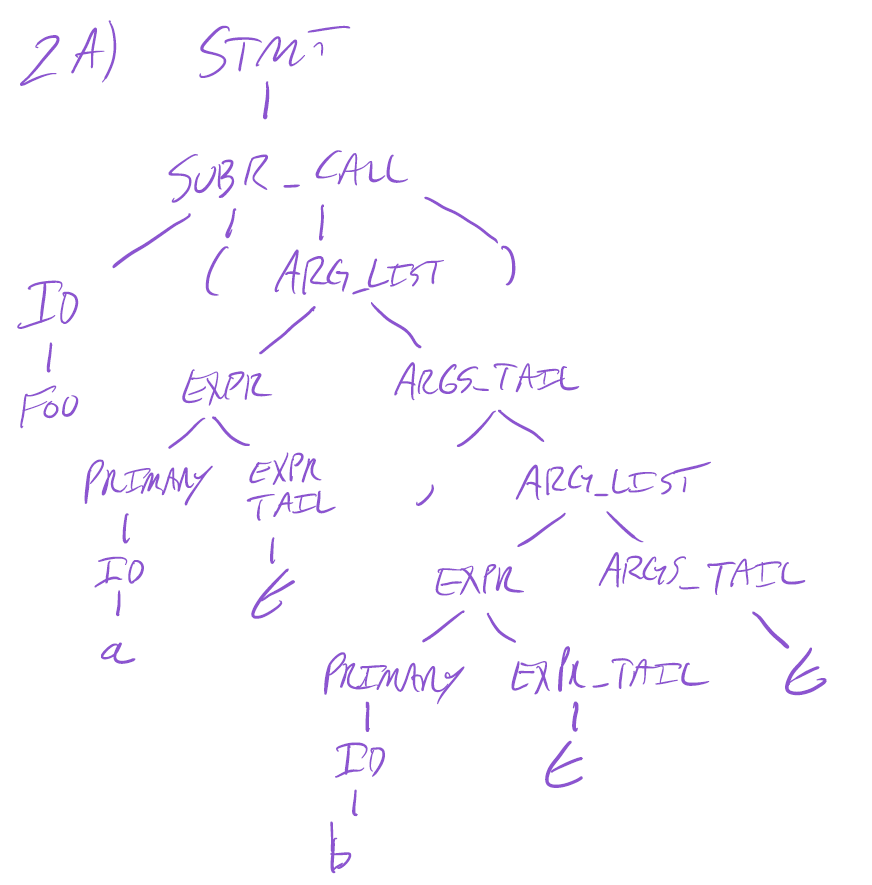 2A) STMT
SUBR_CALL
( ARG_LIST )
ID
FOO
EXPR ARGS_TAIL
PRIMARY EXPR , ARG_LIST
TAIL
ID ε EXPR ARGS_TAIL
a
PRIMARY EXPR_TAIL ε
ID ε
b